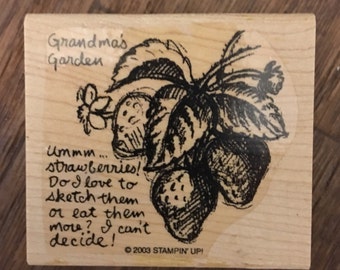 Grandma's
Garden
Ummm...
strawberries!
Do I love to
sketch them
or eat them
more? I can't
decide!
© 2003 STAMPIN' UP!